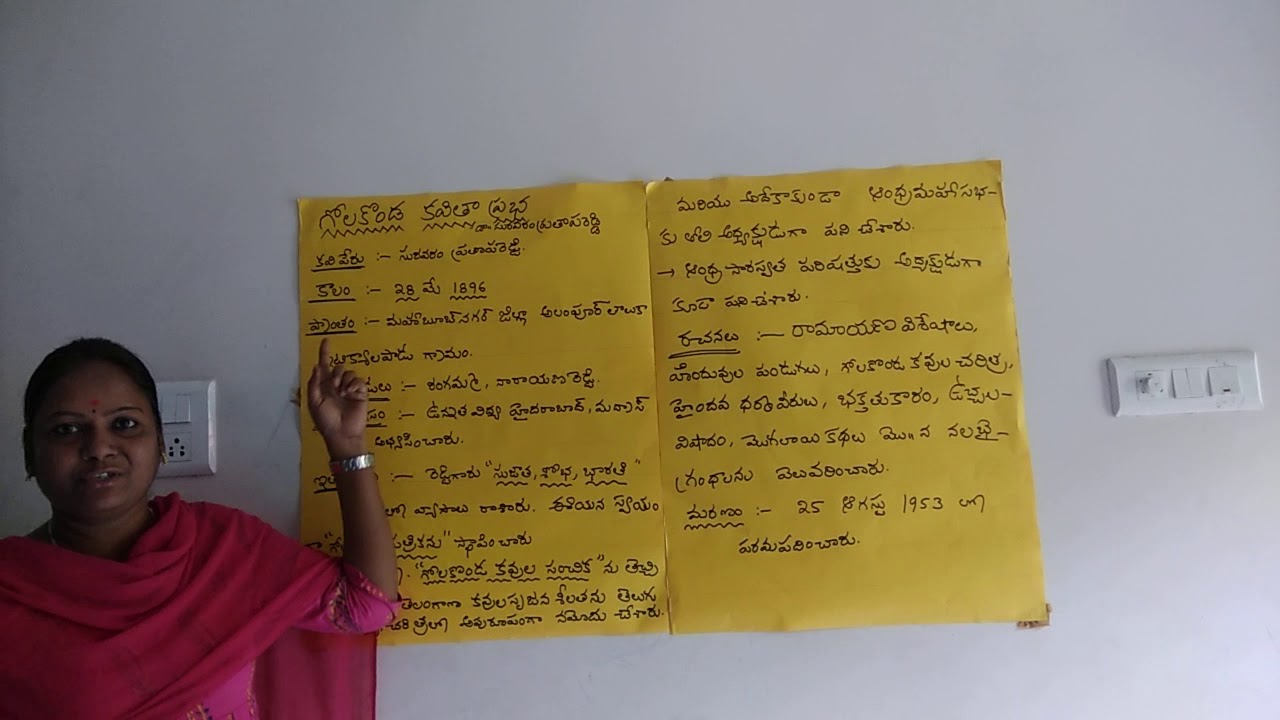 గోలకొండ కవితా ప్రభ
డా॥ సురవరం ప్రతాపరెడ్డి
కవి పేరు :- సురవరం ప్రతాపరెడ్డి.
కాలం :- 28 మే 1896
ప్రాంతం :- మహబూబ్‌నగర్ జిల్లా అలంపూర్ తాలుకా
గ్రామం.
:- రంగమ్మ, నారాయణరెడ్డి.
:- ఉన్నత విద్య హైదరాబాద్, మద్రాస్
అభ్యసించారు.
:- రెడ్డిగారు "సుజాత, శోభ, భారతి"
వ్యాసాలు రాశారు. ఈయన స్వయం
పత్రికను" స్థాపించారు
"గోలకొండ కవుల సంచిక"ను తెచ్చి
తెలంగాణా కవుల సృజన శీలతను తెలుగు
చరిత్రలో అపురూపంగా నమోదు చేశారు.
మరియు అదేకాకుండా ఆంధ్రమహాసభ-
కు తొలి అధ్యక్షుడుగా పని చేశారు.
→ ఆంధ్ర సారస్వత పరిషత్తుకు అధ్యక్షుడుగా
కూడా పని చేశారు.
రచనలు :- రామాయణ విశేషాలు,
హిందువుల పండుగలు, గోలకొండ కవుల చరిత్ర,
హైందవ ధర్మ వీరులు, భక్తతుకారం, ఉచ్ఛల-
విషాదం, మొగలాయి కథలు మొ॥న నలభై-
గ్రంథాలను వెలువరించారు.
మరణం :- 25 ఆగస్టు 1953 లో
పరమపదించారు.